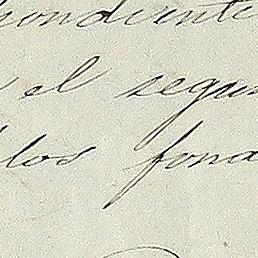 pondiente
el segun
los fond